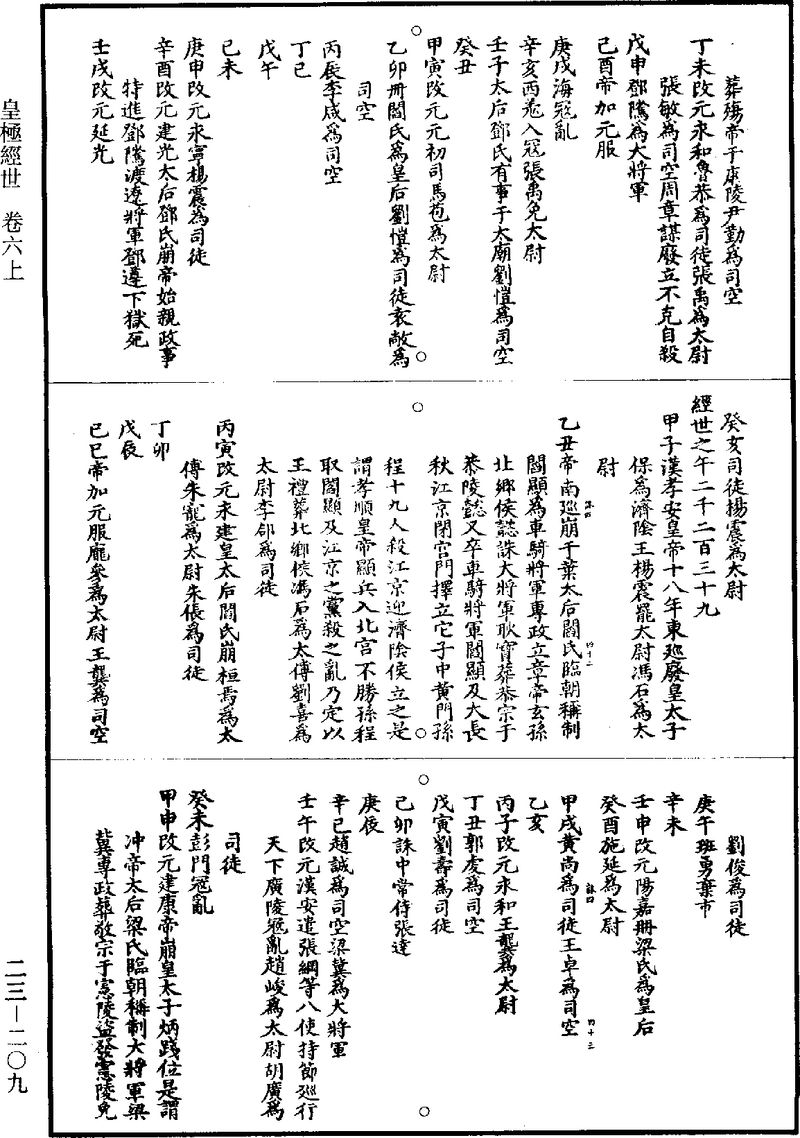 皇極經世　卷六上
葬殤帝于康陵尹勤為司空
丁未改元永和魯恭為司徒張禹為太尉
張敏為司空周章謀廢立不克自殺
戊申鄧騭為大將軍
己酉帝加元服
庚戌海寇亂
辛亥西羗入寇張禹免太尉
壬子太后鄧氏有事于太廟劉愷為司空
癸丑
甲寅改元元初司馬苞為太尉
乙卯冊閻氏為皇后劉愷為司徒袁敞為
司空
丙辰李咸為司空
丁巳
戊午
己未
庚申改元永寧楊震為司徒
辛酉改元建光太后鄧氏崩帝始親政事
特進鄧騭渡遼將軍鄧遵下獄死
壬戌改元延光
癸亥司徒楊震為太尉
經世之午二千二百三十九
甲子漢孝安皇帝十八年東廵廢皇太子
保為濟陰王楊震罷太尉馮石為太
尉
乙丑帝南廵崩于葉太后閻氏臨朝稱制
閻顯為車騎將軍專政立章帝玄孫
北鄉侯懿誅大將軍耿寶葬恭宗于
恭陵懿又卒車騎將軍閻顯及大長
秋江京閉宮門擇立它子中黃門孫
程十九人殺江京迎濟陰侯立之是
謂孝順皇帝顯兵入北宮不勝孫程
取閻顯及江京之黨殺之亂乃定以
王禮葬北鄉侯馮石為太傅劉喜為
太尉李郃為司徒
丙寅改元永建皇太后閻氏崩桓焉為太
傅朱寵為太尉朱倀為司徒
丁卯
戊辰
己巳帝加元服龐參為太尉王龔為司空
劉俊為司徒
庚午班勇棄市
辛未
壬申改元陽嘉冊梁氏為皇后
癸酉施延為太尉
甲戌黃尚為司徒王卓為司空
乙亥
丙子改元永和王龔為太尉
丁丑郭虔為司空
戊寅劉壽為司徒
己卯誅中常侍張逵
庚辰
辛巳趙誠為司空梁冀為大將軍
壬午改元漢安遣張綱等八使持節廵行
天下廣陵寇亂趙峻為太尉胡廣為
司徒
癸未彭門寇亂
甲申改元建康帝崩皇太子炳踐位是謂
冲帝太后梁氏臨朝稱制大將軍梁
冀專政葬敬宗于憲陵盜發憲陵免
二三—二〇九